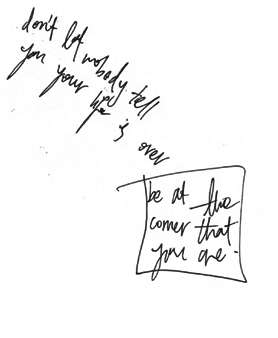 don't let nobody tell
you your life is over
be at the
corner that
you are.